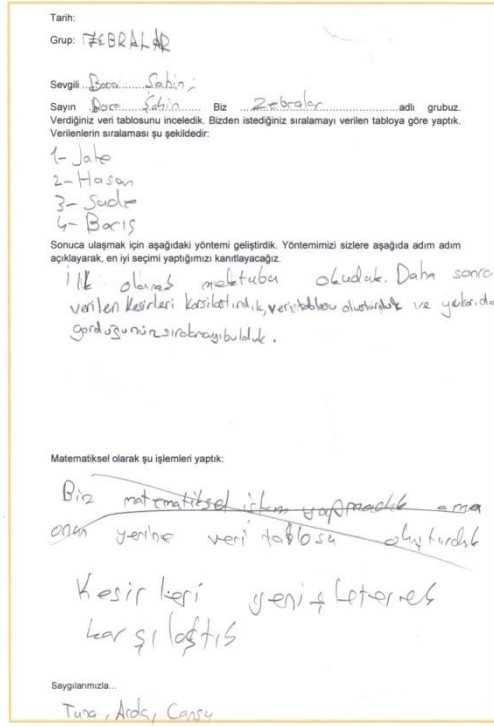 Tarih:
Grup: ZEBRALAR
Sevgili ...Bora.......Şahin;
Sayın ...Bora....Şahin....... Biz ....Zebralar..................adlı grubuz.
Verdiğiniz veri tablosunu inceledik. Bizden istediğiniz sıralamayı verilen tabloya göre yaptık.
Verilenlerin sıralaması şu şekildedir:
1- Jale
2- Hasan
3- Sude
4- Barış
Sonuca ulaşmak için aşağıdaki yöntemi geliştirdik. Yöntemimizi sizlere aşağıda adım adım
açıklayarak, en iyi seçimi yaptığımızı kanıtlayacağız.
İlk olarak mektubu okuduk. Daha sonra
verilen kesirleri karşılaştırdık, veri tablosu oluşturduk ve yukarıda
gördüğünüz sıralamayı bulduk.
Matematiksel olarak şu işlemleri yaptık:
Biz matematiksel işlem yapmadık ama
onun yerine veri tablosu oluşturduk
Kesirleri genişleterek
karşılaştık
Saygılarımızla...
Tuna, Arda, Cansu